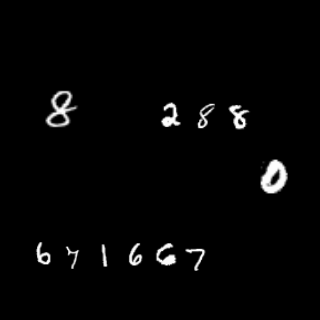 8 288
0
671667